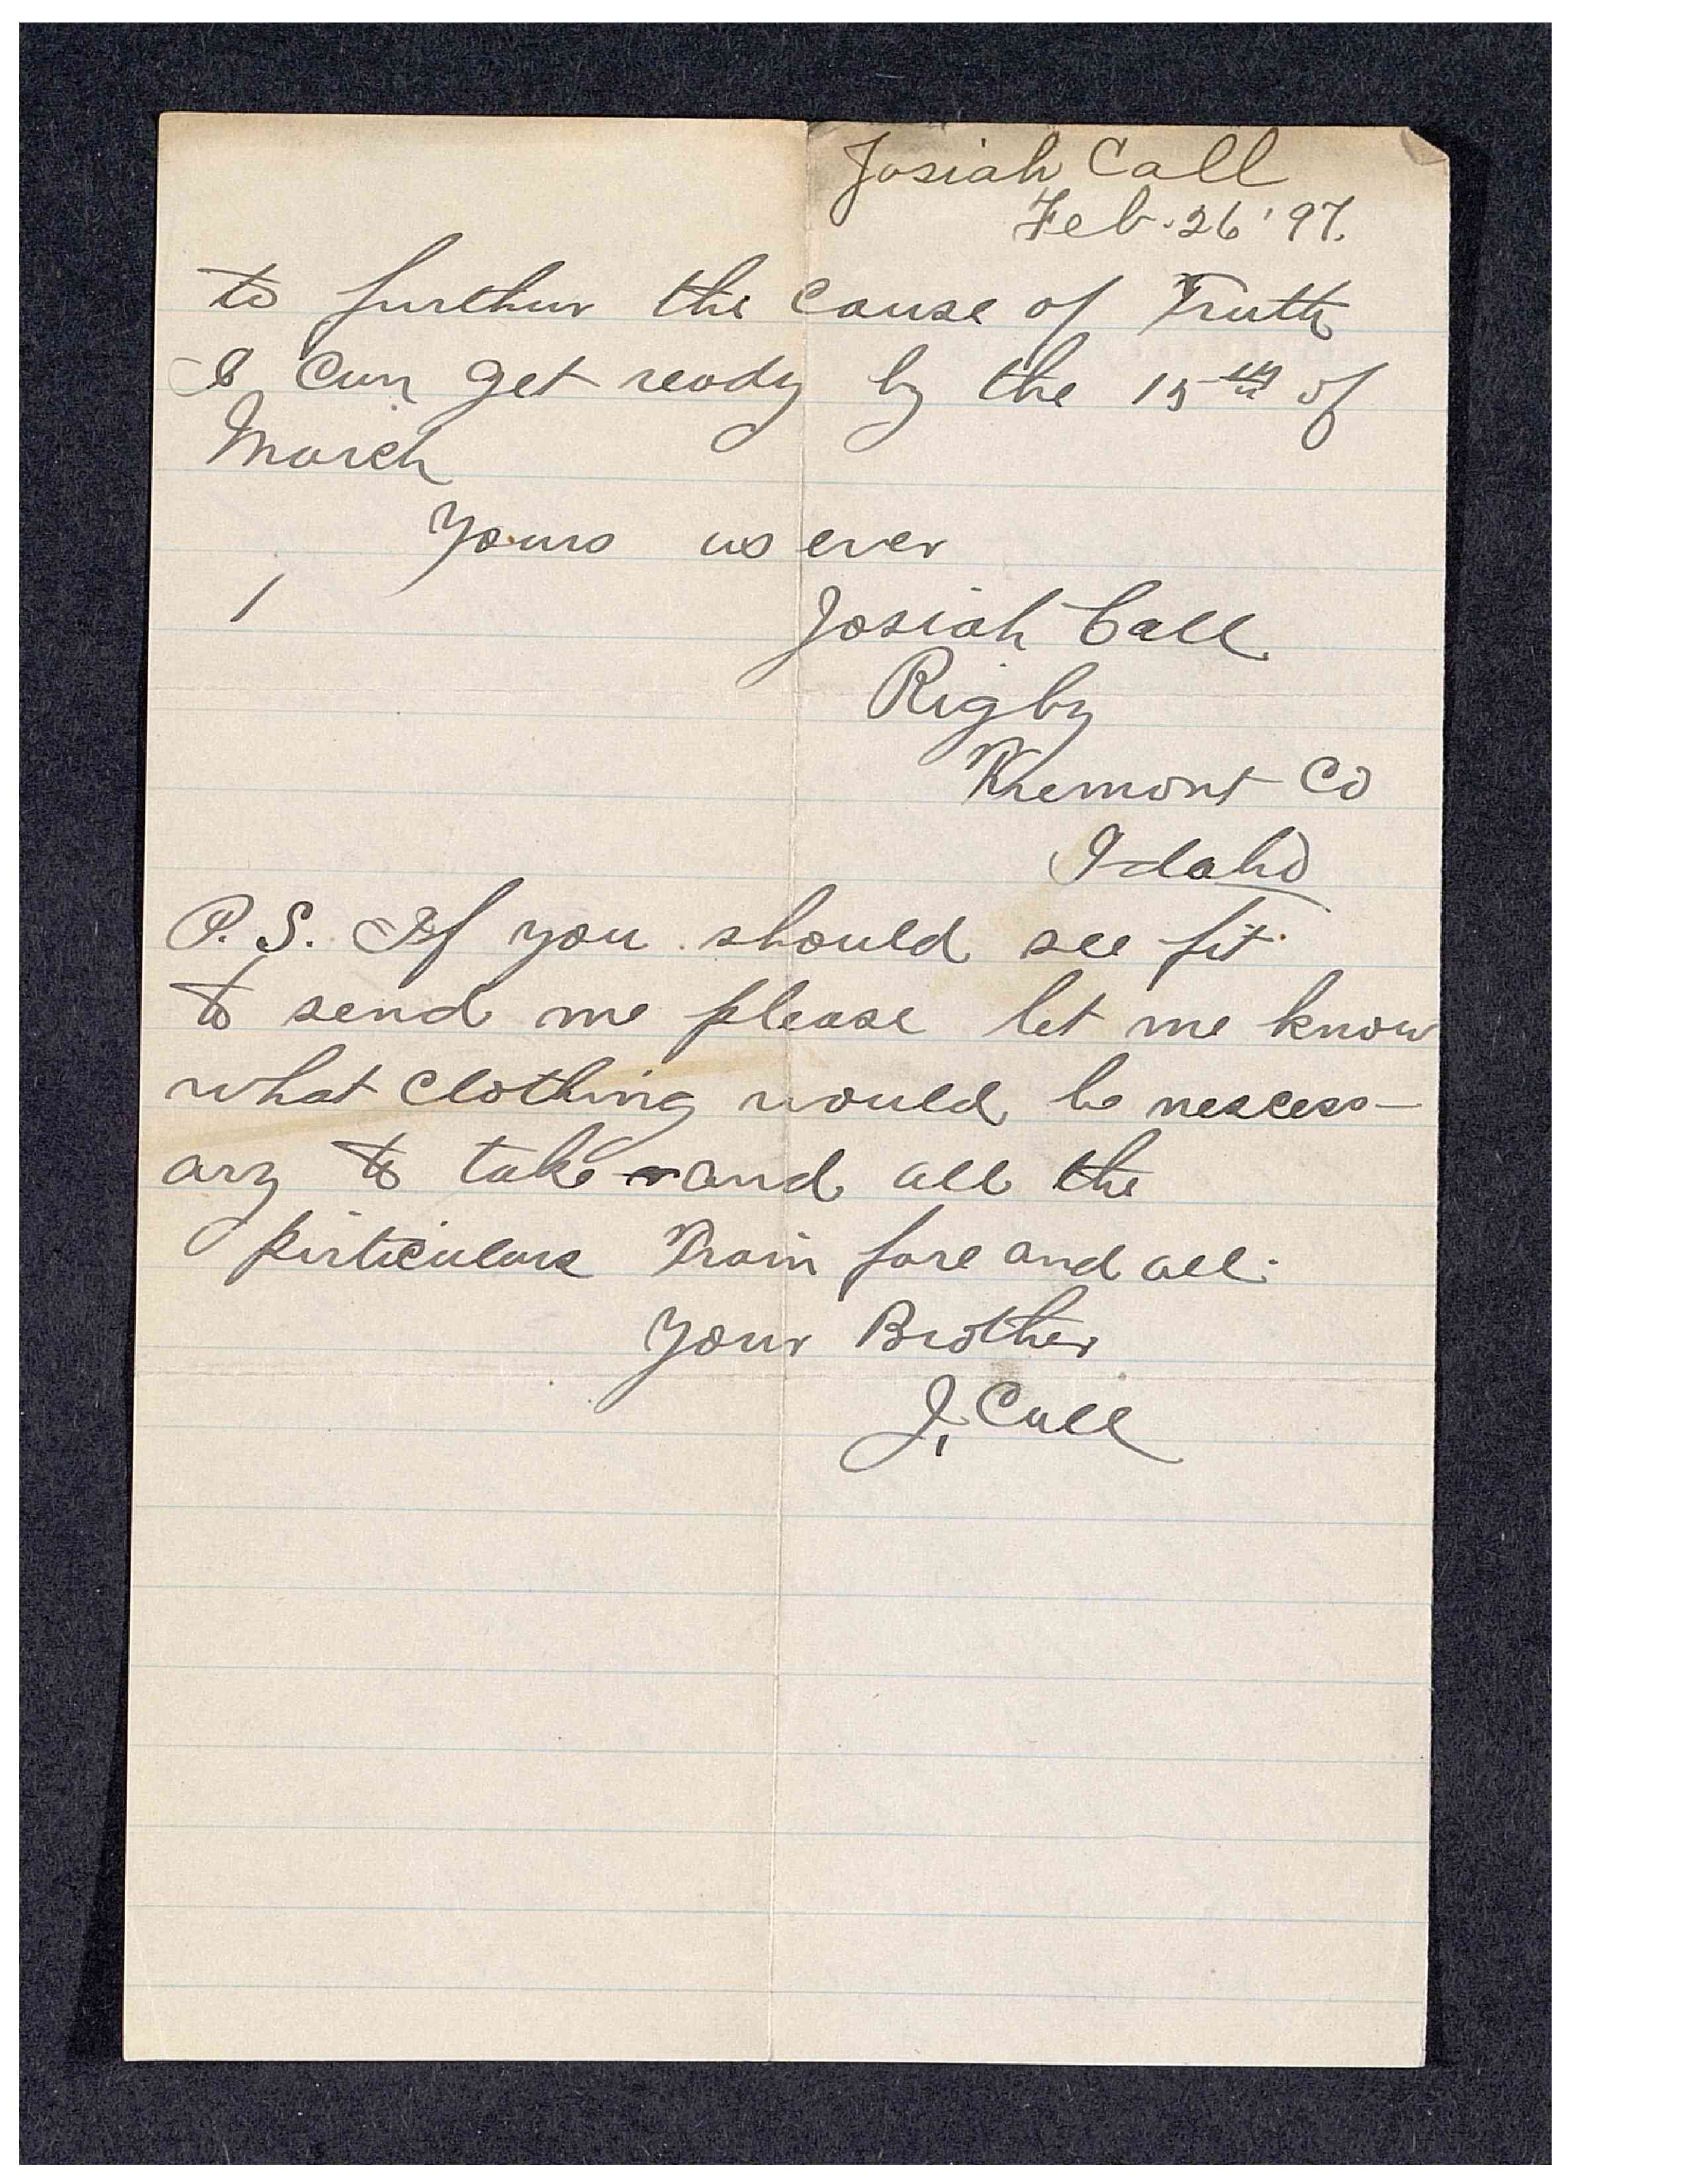 Josiah Call
Feb. 26 '97.
to further the cause of Truth
I can get ready by the 15th of
March
Yours as ever
Josiah Call
Rigby
Fremont Co
Idaho
P.S. If you should see fit
to send me please let me know
what clothing would be nescess-
ary to take and all the
pirticulars Train fare and all.
Your Brother
J. Call